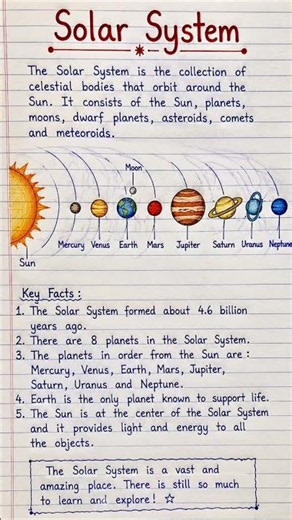 Solar System
The Solar System is the collection of
celestial bodies that orbit around the
Sun. It consists of the Sun, planets,
moons, dwarf planets, asteroids, comets
and meteoroids.
Moon
Mercury Venus Earth Mars Jupiter Saturn Uranus Neptune
Sun
Key Facts :
1. The Solar System formed about 4.6 billion
years ago.
2. There are 8 planets in the Solar System.
3. The planets in order from the Sun are :
Mercury, Venus, Earth, Mars, Jupiter,
Saturn, Uranus and Neptune.
4. Earth is the only planet known to support life.
5. The Sun is at the center of the Solar System
and it provides light and energy to all
the objects.
The Solar System is a vast and
amazing place. There is still so much
to learn and explore! ☆